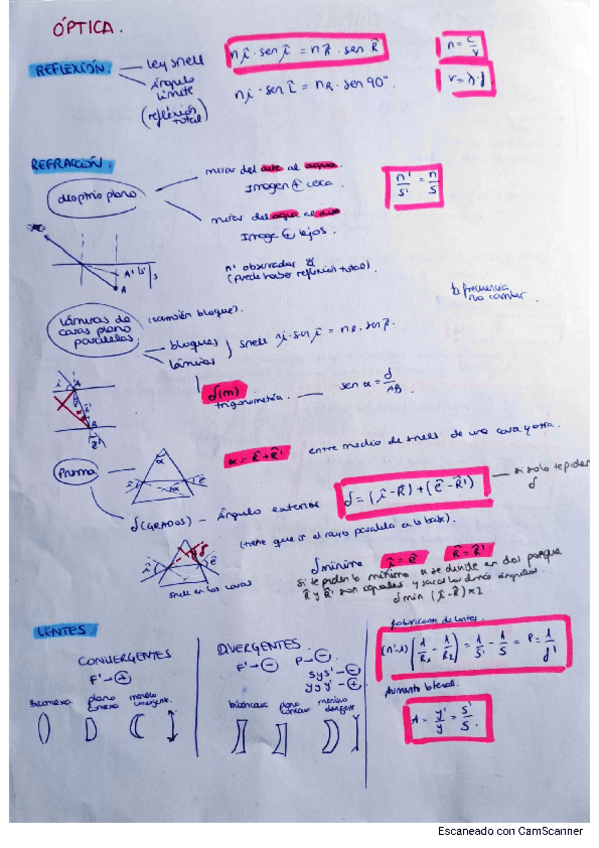 ÓPTICA.
REFLEXIÓN
Ley snell
Ángulo límite
(reflexión total)
n î · sen î = n R̂ · sen R̂
n î · sen î = nR · sen 90°.
n = c/v
v = λ · f
REFRACCIÓN.
dioptrio plano
mirar del aire al agua.
Imagen + cerca.
mirar del agua al aire
Imagen + lejos.
n'/s' = n/s
n' observador
(Puede haber reflexión total).
A' s' s
A
la frecuencia
no cambia.
Láminas de
caras plano
paralelas
(también bloque).
bloques
láminas
snell ni · sen î = nR · sen R̂.
d(m)
trigonometría
sen α = d/AB
A
B
Prisma
α
α = R̂ + R̂'
entre medio de snells de una cara y otra.
δ (GRADOS) - Ángulo exterior
δ = (î - R̂) + (ê - R̂')
si solo te piden
δ
(tiene que ir el rayo paralelo a la base).
snell en las caras
δ mínimo
î = ê
R̂ = R̂'
si te piden lo mínimo α se divide en dos porque
R̂ y R̂' son iguales y sacas los demás ángulos.
δ min (î - R̂) × 2
LENTES
CONVERGENTES
F' → +
biconvexa
plano convexa
menisco convergente.
DIVERGENTES
F' → -
P → -
s y s' → -
y y y' → +
bicóncava
plano cóncava
menisco divergente
fabricante de lentes.
(n'-1) (1/R1 - 1/R2) = 1/s' - 1/s = P = 1/f'
Aumento lateral.
A = y'/y = s'/s.
Escaneado con CamScanner